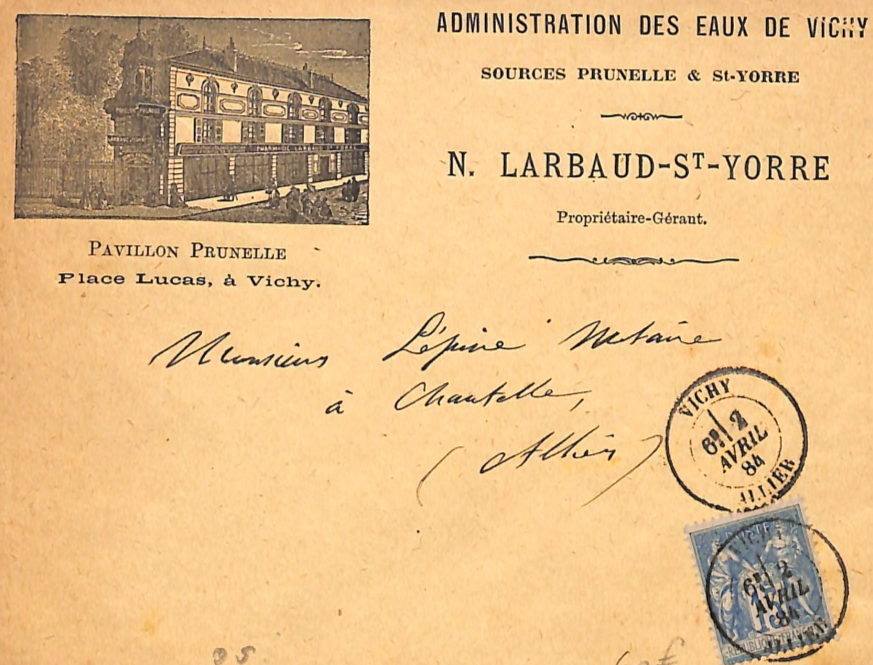 ADMINISTRATION DES EAUX DE VICHY
SOURCES PRUNELLE & St-YORRE
N. LARBAUD-ST-YORRE
Propriétaire-Gérant.
PHARMACIE LARBAUD
PAVILLON PRUNELLE
Place Lucas, à Vichy.
Monsieur Lépine Notaire
à Chantelle,
(Allier)
VICHY
6E 2
AVRIL
84
ALLIER
POSTES
VICHY
6E 2
AVRIL
84
15
ALLIER
REPUBLIQUE FRANCAISE